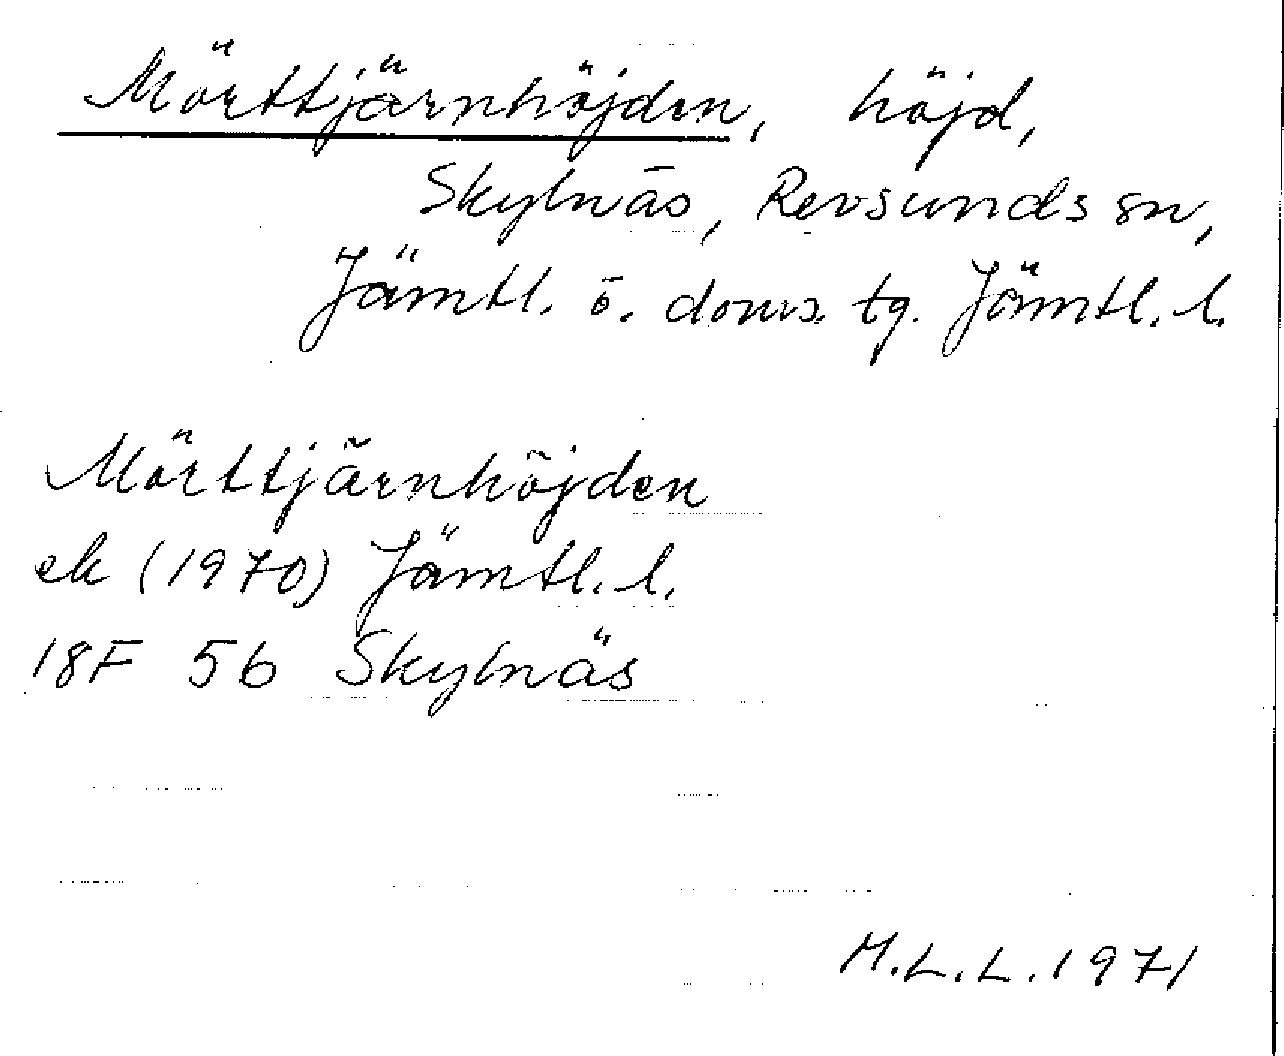 Mörttjärnhöjden, höjd,
Skylnäs, Revsunds sn,
Jämtl. ö. doms. tg. Jämtl. l.
Mörttjärnhöjden
ek (1970) Jämtl. l.
18F 5b Skylnäs
M.L.L. 1971